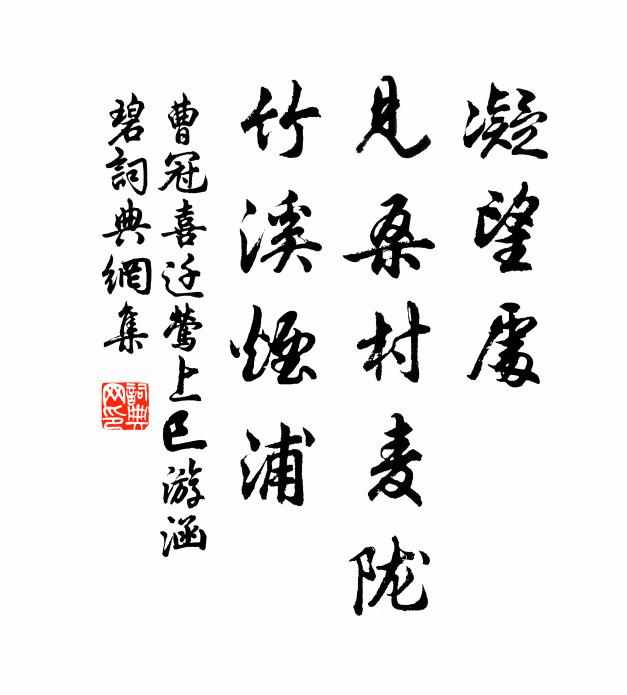 凝望處
見桑村麦陇
竹溪煙浦
曹冠喜迁鶯上巳游涵
碧詞典網集
詞典
网印